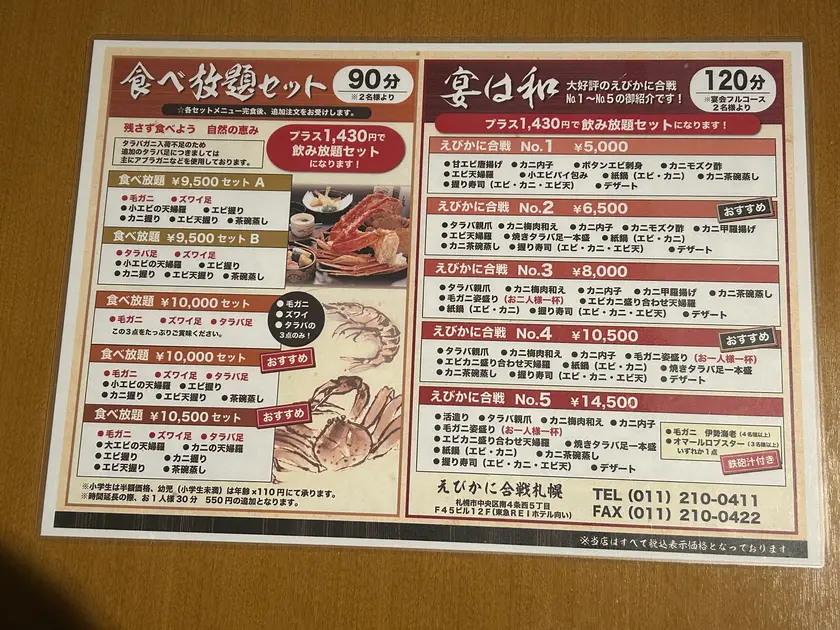 食べ放題セット
90分
※2名様より
☆各セットメニュー完食後、追加注文をお受けします。
残さず食べよう 自然の恵み
タラバガニ入荷不足のため
追加のタラバ足につきましては
主にアブラガニなどを使用しております。
プラス1,430円で
飲み放題セット
になります!
食べ放題 ¥9,500セット A
●毛ガニ ●ズワイ足
●小エビの天婦羅 ●エビ握り
●カニ握り ●エビ天握り ●茶碗蒸し
食べ放題 ¥9,500セット B
●タラバ足 ●ズワイ足
●小エビの天婦羅 ●エビ握り
●カニ握り ●エビ天握り ●茶碗蒸し
食べ放題 ¥10,000セット
●毛ガニ ●ズワイ足 ●タラバ足
この3点をたっぷりご賞味ください。
●毛ガニ
●ズワイ
●タラバの
3点のみ!
食べ放題 ¥10,000セット
おすすめ
●毛ガニ ●ズワイ足 ●タラバ足
●小エビの天婦羅 ●エビ握り
●カニ握り ●エビ天握り ●茶碗蒸し
食べ放題 ¥10,500セット
おすすめ
●毛ガニ ●ズワイ足 ●タラバ足
●大エビの天婦羅 ●エビ天婦羅
●エビ握り ●カニ握り
●エビ天握り ●茶碗蒸し
※小学生は半額価格、幼児(小学生未満)は年齢×110円にて承ります。
※時間延長の際、お1人様30分 550円の追加となります。
宴は和
大好評のえびかに合戦
No.1〜No.5の御紹介です!
120分
※宴会フルコース
2名様より
プラス1,430円で飲み放題セットになります!
えびかに合戦 No.1 ¥5,000
●甘エビ唐揚げ ●カニ内子 ●ボタンエビ刺身 ●カニモズク酢
●エビ天婦羅 ●小エビパイ包み ●紙鍋(エビ・カニ) ●カニ茶碗蒸し
●握り寿司(エビ・カニ・エビ天) ●デザート
えびかに合戦 No.2 ¥6,500
おすすめ
●タラバ親爪 ●カニ梅肉和え ●カニ内子 ●カニモズク酢 ●カニ甲羅揚げ
●エビ天婦羅 ●焼きタラバ足一本盛 ●紙鍋(エビ・カニ)
●カニ茶碗蒸し ●握り寿司(エビ・カニ・エビ天) ●デザート
えびかに合戦 No.3 ¥8,000
●タラバ親爪 ●カニ梅肉和え ●カニ内子 ●カニ甲羅揚げ ●カニ茶碗蒸し
●毛ガニ姿盛り(お二人様一杯) ●エビカニ盛り合わせ天婦羅
●紙鍋(エビ・カニ) ●握り寿司(エビ・カニ・エビ天) ●デザート
えびかに合戦 No.4 ¥10,500
おすすめ
●タラバ親爪 ●カニ梅肉和え ●カニ内子 ●毛ガニ姿盛り(お一人様一杯)
●エビカニ盛り合わせ天婦羅 ●紙鍋(エビ・カニ) ●焼きタラバ足一本盛
●カニ茶碗蒸し ●握り寿司(エビ・カニ・エビ天) ●デザート
えびかに合戦 No.5 ¥14,500
●活造り ●タラバ親爪 ●カニ梅肉和え ●カニ内子
●毛ガニ姿盛り(お一人様一杯)
●エビカニ盛り合わせ天婦羅 ●焼きタラバ足一本盛
●紙鍋(エビ・カニ) ●カニ茶碗蒸し
●握り寿司(エビ・カニ・エビ天) ●デザート
●毛ガニ 伊勢海老(4名様以上)
●オマールロブスター(3名様以上)
いずれか1点
鉄砲汁付き
えびかに合戦札幌
札幌市中央区南4条西5丁目
F45ビル12F(東急REIホテル向い)
TEL (011) 210-0411
FAX (011) 210-0422
※当店はすべて税込表示価格となっております